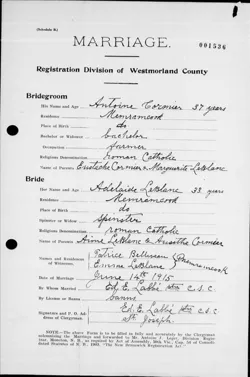 (Schedule B.)
MARRIAGE.
001536
Registration Division of Westmorland County
Bridegroom
His Name and Age Antoine Cormier 37 years
Residence Memramcook
Place of Birth do
Bachelor or Widower bachelor
Occupation farmer
Religious Denomination roman Catholic
Name of Parents Eustiche Cormier & Marguerite LeBlanc
Bride
Her Name and Age Adelaide LeBlanc 33 years
Residence Memramcook
Place of Birth do
Spinster or Widow spinster
Religious Denomination roman Catholic
Name of Parents Aimé LeBlanc & Cormier
Names and Residences of Witnesses Patrice Belliveau Memramcook
Emma LeBlanc
Date of Marriage June 14th 1915
By Whom Married Ed. E. Labbé ptre C.S.C.
By License or Banns banns
Signature and P. O. Address of Clergyman Ed. E. Labbé ptre C.S.C.
St. Joseph
NOTE.—The above Form is to be filled in fully and accurately by the Clergyman
solemnizing the Marriage and forwarded to